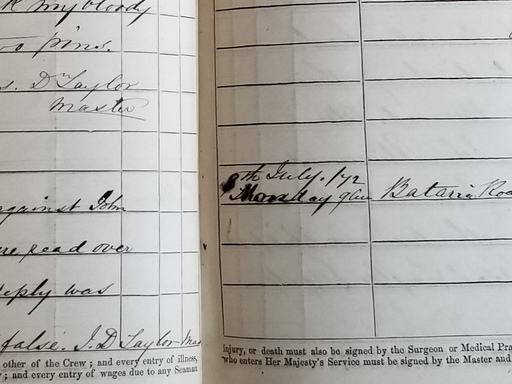 my bloody
pins.
s. D Taylor
Master
against John
read over
reply was
false. J. D Taylor Mas
other of the Crew; and every entry of illness,
; and every entry of wages due to any Seaman
8th July. /72
Monday Batavia Roa
injury, or death must also be signed by the Surgeon or Medical Pra
who enters Her Majesty's Service must be signed by the Master and